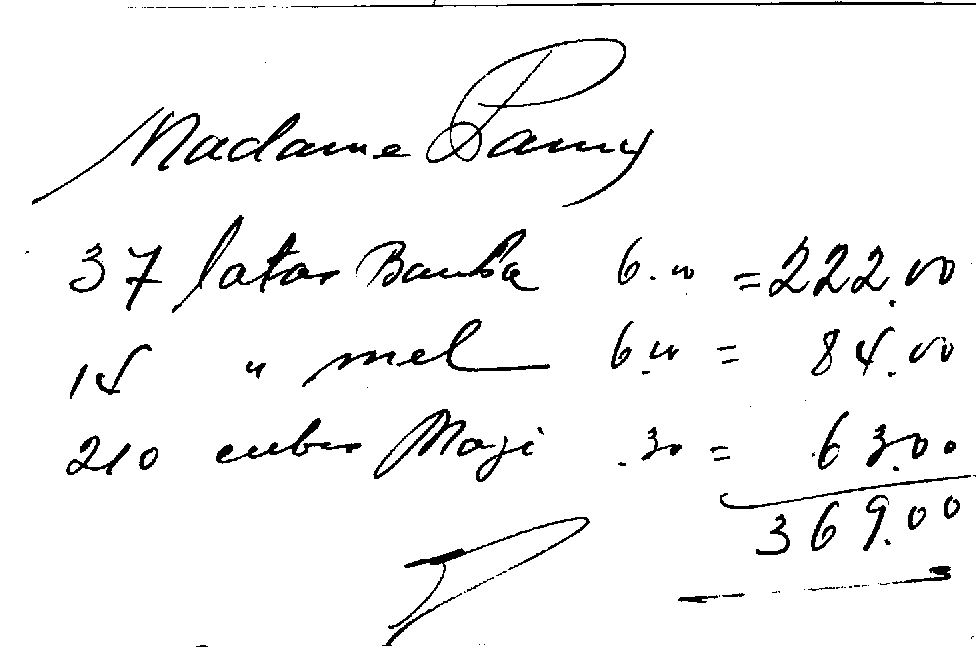 Madame Pamy
37 latas Banha 6.00 = 222.00
14 " mel 6.00 = 84.00
210 cubos Magi .30 = 63.00
369.00